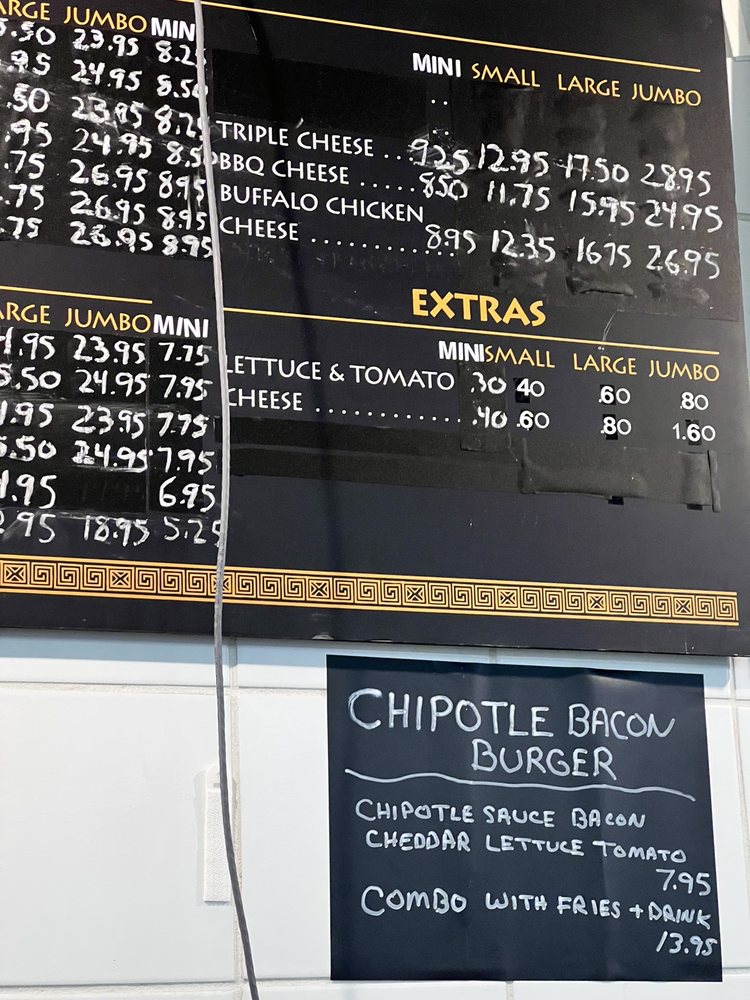 ARGE JUMBO MINI
5.50 23.95 8.25
.95 24.95 8.50
.50 23.95 8.25
.95 24.95 8.50
.75 26.95 8.95
.75 26.95 8.95
.75 26.95 8.95
ARGE JUMBO MINI
.95 23.95 7.75
5.50 24.95 7.95
.95 23.95 7.75
5.50 24.95 7.95
.95 6.95
.95 18.95 5.25
MINI SMALL LARGE JUMBO
TRIPLE CHEESE ... 9.25 12.95 17.50 28.95
BBQ CHEESE ..... 8.50 11.75 15.95 24.95
BUFFALO CHICKEN
CHEESE ............ 8.95 12.35 16.75 26.95
EXTRAS
MINI SMALL LARGE JUMBO
LETTUCE & TOMATO .30 40 .60 .80
CHEESE ............ .40 .60 .80 1.60
CHIPOTLE BACON
BURGER
CHIPOTLE SAUCE BACON
CHEDDAR LETTUCE TOMATO
7.95
COMBO WITH FRIES + DRINK
13.95